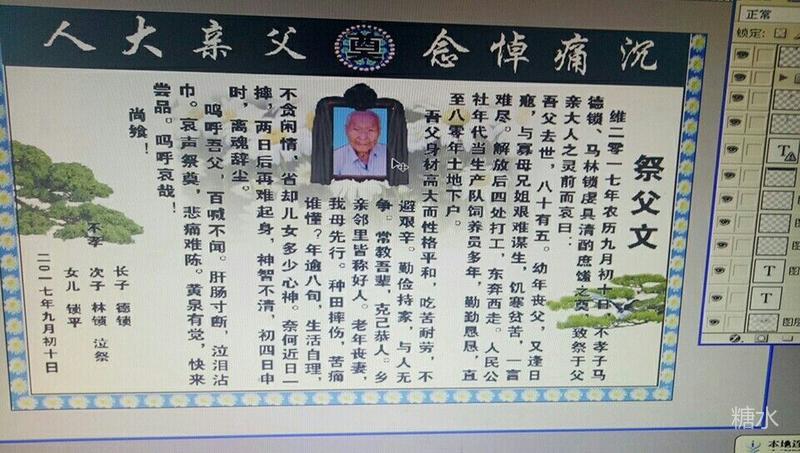 沉痛悼念 奠 父亲大人
祭父文
维二零一七年农历九月初十日，不孝子马
德锁、马林锁虔具清酌庶馐之奠，致祭于父
亲大人之灵前而哀曰：
吾父去世，八十有五。幼年丧父，又逢日
寇，与寡母兄姐艰难谋生，饥寒贫苦，一言
难尽。解放后四处打工，东奔西走。人民公
社年代当生产队饲养员多年，勤勤恳恳，直
至八零年土地下户。
吾父身材高大而性格平和，吃苦耐劳，不
避艰辛。勤俭持家，与人无
争。常教吾辈，克己恭人。乡
亲邻里皆称好人。老年丧妻，
我母先行。种田摔伤，苦痛
谁懂？年逾八旬，生活自理，
不贪闲情，省却儿女多少心神。奈何近日一
摔，两日后再难起身，神智不清，初四日申
时，离魂辞尘。
呜呼吾父，百喊不闻。肝肠寸断，泣泪沾
巾。哀声祭奠，悲痛难陈。黄泉有觉，快来
尝品。呜呼哀哉！
尚飨！
不孝
长子 德锁
次子 林锁 泣祭
女儿 锁平
二〇一七年九月初十日
正常
锁定:
T
T
T
图
图
图
图层
本地连
糖水